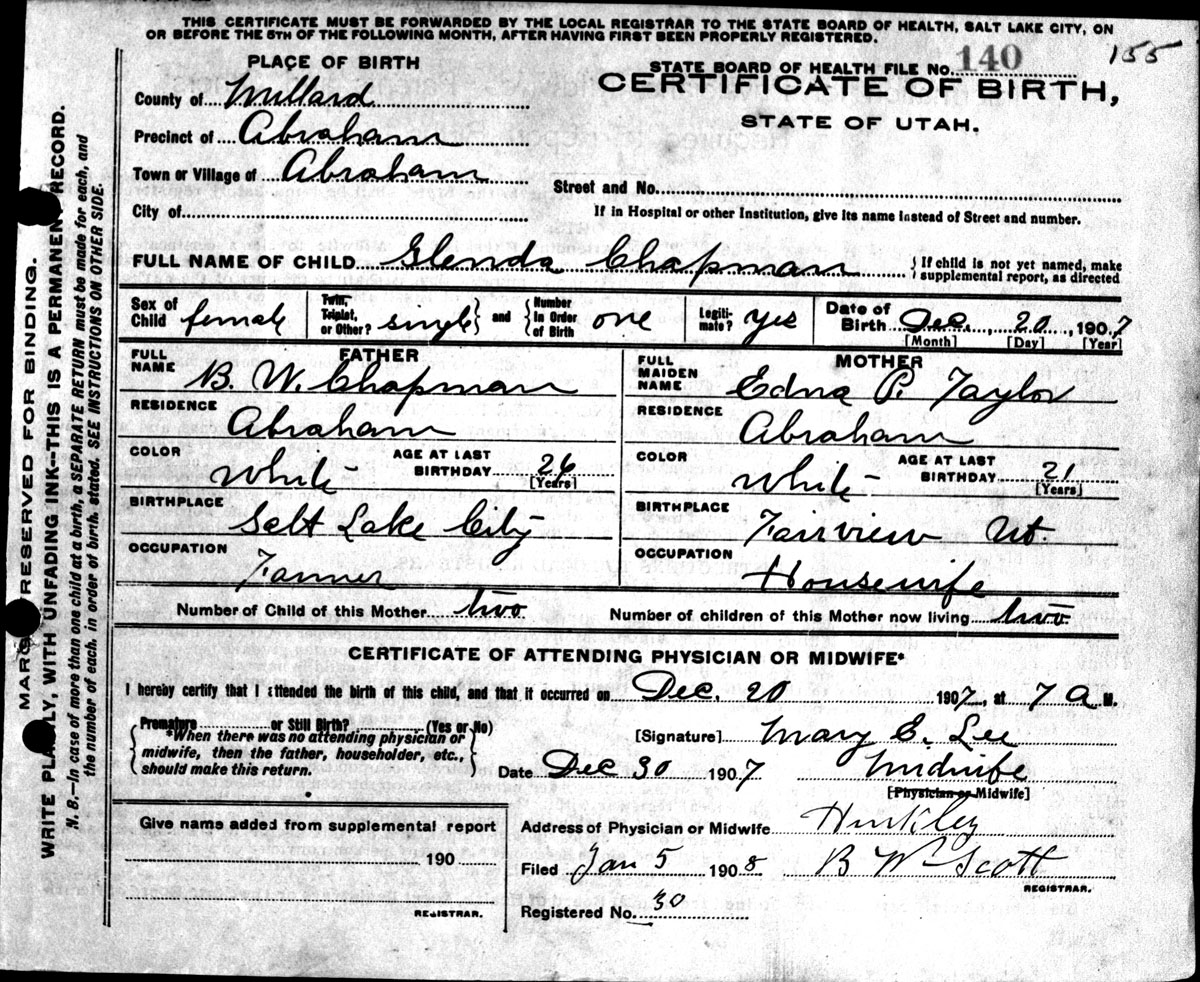 THIS CERTIFICATE MUST BE FORWARDED BY THE LOCAL REGISTRAR TO THE STATE BOARD OF HEALTH, SALT LAKE CITY, ON
OR BEFORE THE 5TH OF THE FOLLOWING MONTH, AFTER HAVING FIRST BEEN PROPERLY REGISTERED.
155
PLACE OF BIRTH
STATE BOARD OF HEALTH FILE No. 140
CERTIFICATE OF BIRTH,
STATE OF UTAH.
County of Millard
Precinct of Abraham
Town or Village of Abraham
Street and No.
City of
If in Hospital or other Institution, give its name instead of Street and number.
FULL NAME OF CHILD Glenda Chapman { If child is not yet named, make
supplemental report, as directed
Sex of Child female Twin, Triplet, or Other? single } and { Number in Order of Birth one Legiti-mate? yes Date of Birth Dec. 20, 1907
[Month] [Day] [Year]
FATHER
FULL NAME B. W. Chapman
RESIDENCE Abraham
COLOR White AGE AT LAST BIRTHDAY 26 [Years]
BIRTHPLACE Salt Lake City
OCCUPATION Farmer
MOTHER
FULL MAIDEN NAME Edna P. Taylor
RESIDENCE Abraham
COLOR White AGE AT LAST BIRTHDAY 21 [Years]
BIRTHPLACE Fairview Ut.
OCCUPATION Housewife
Number of Child of this Mother two Number of children of this Mother now living two
CERTIFICATE OF ATTENDING PHYSICIAN OR MIDWIFE*
I hereby certify that I attended the birth of this child, and that it occurred on Dec. 20 1907, at 7 A M.
Premature or Still Birth? (Yes or No)
*When there was no attending physician or
midwife, then the father, householder, etc.,
should make this return.
[Signature] Mary E. Lee
Date Dec 30 1907 Midwife
[Physician or Midwife]
Give name added from supplemental report
190
REGISTRAR.
Address of Physician or Midwife Hinkley
Filed Jan 5 1908 B Wm Scott
REGISTRAR.
Registered No. 30
MARGIN RESERVED FOR BINDING.
WRITE PLAINLY, WITH UNFADING INK--THIS IS A PERMANENT RECORD.
N. B.—In case of more than one child at a birth, a SEPARATE RETURN must be made for each, and
the number of each, in order of birth, stated. SEE INSTRUCTIONS ON OTHER SIDE.